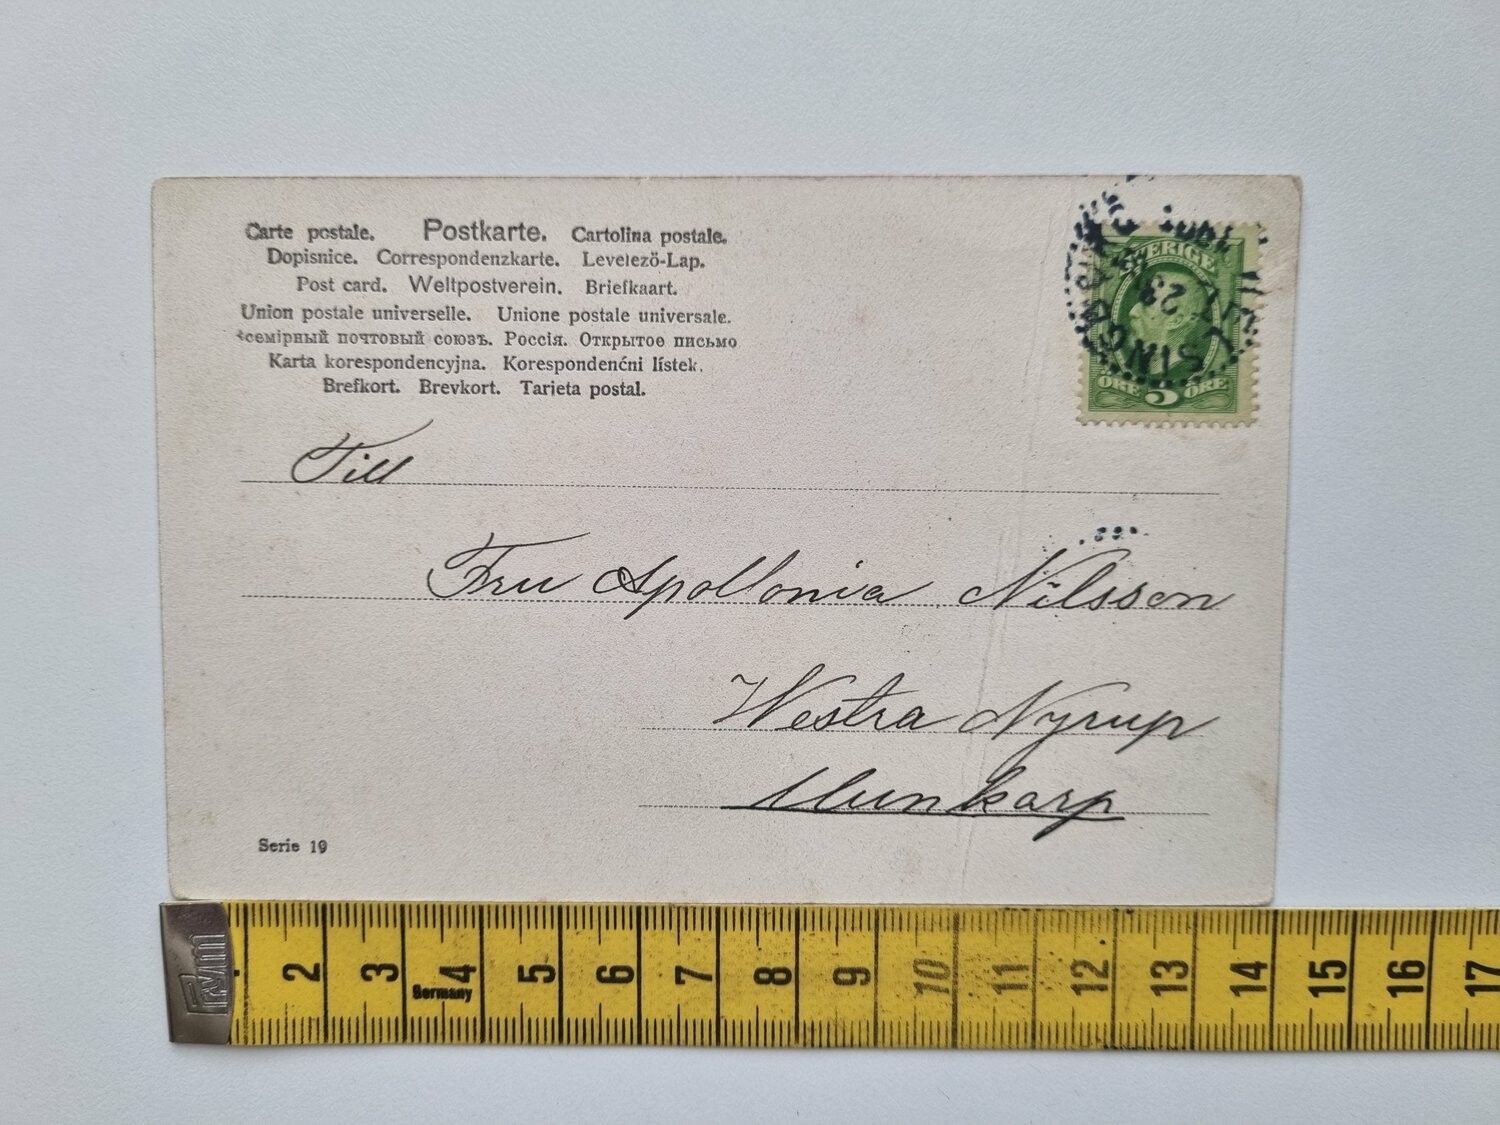 Carte postale. Postkarte. Cartolina postale.
Dopisnice. Correspondenzkarte. Levelező-Lap.
Post card. Weltpostverein. Briefkaart.
Union postale universelle. Unione postale universale.
всемірный почтовый союзъ. Россія. Открытое письмо
Karta korespondencyjna. Korespondenćni lístek.
Brefkort. Brevkort. Tarjeta postal.
SVERIGE
23
ÖRE 5 ÖRE
Till
Fru Apollonia Nilsson
Westra Nyrup
Munkarp
Serie 19
2 3 4 5 6 7 8 9 10 11 12 13 14 15 16 17
Germany